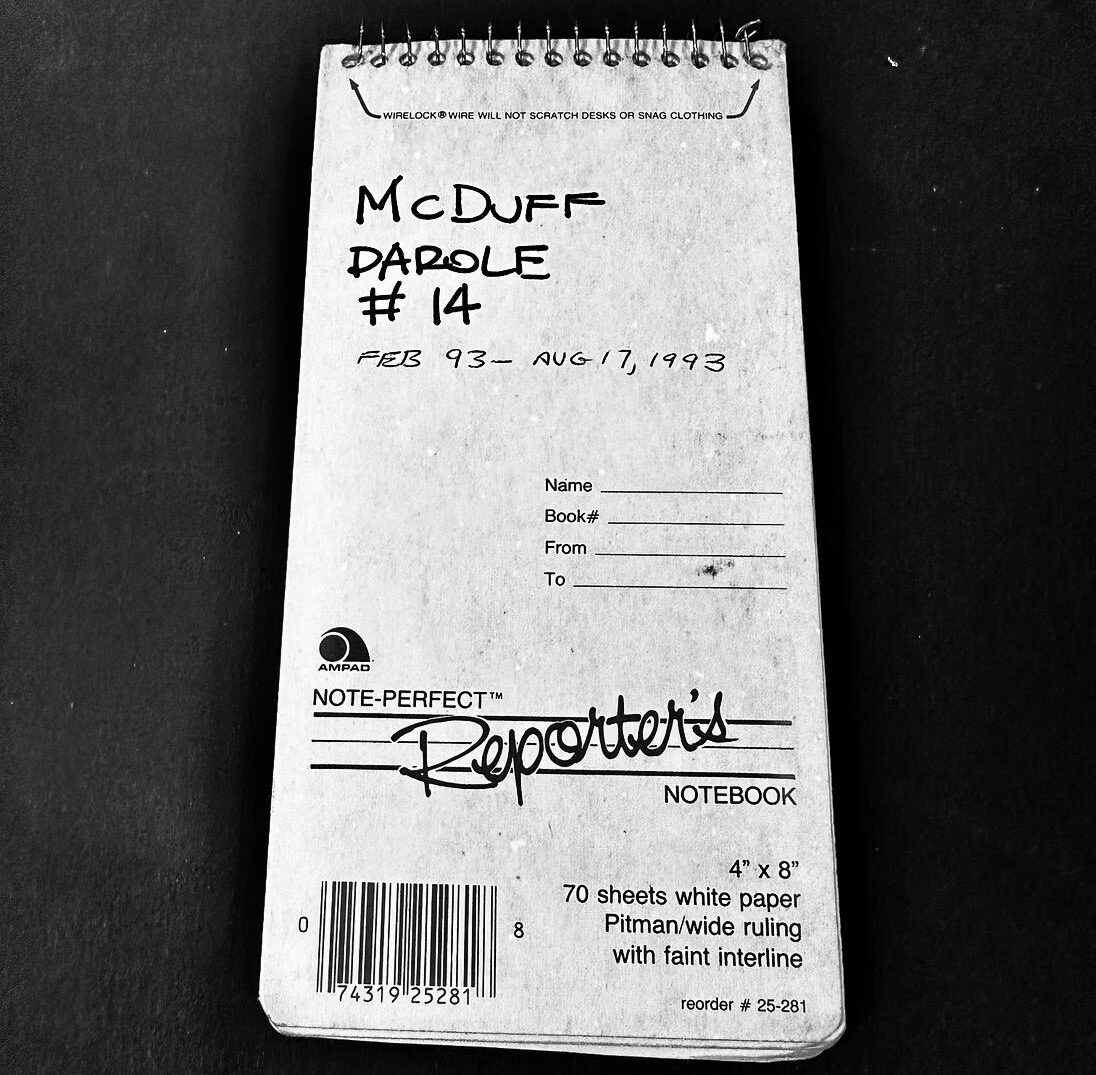 WIRELOCK® WIRE WILL NOT SCRATCH DESKS OR SNAG CLOTHING
McDUFF
PAROLE
# 14
FEB 93 – AUG 17, 1993
Name
Book#
From
To
AMPAD
NOTE-PERFECT™
Reporter's
NOTEBOOK
4" x 8"
70 sheets white paper
Pitman/wide ruling
with faint interline
reorder # 25-281
0 74319 25281 8